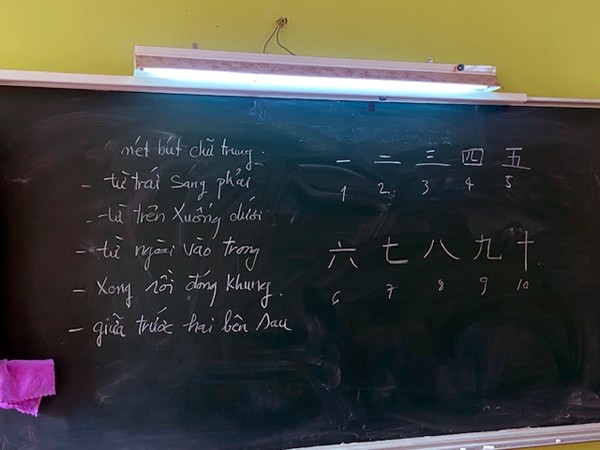 nét bút chữ trung.
- từ trái sang phải
- từ trên xuống dưới
- từ ngoài vào trong
- Xong rồi đóng khung.
- giữa trước hai bên sau
一 二 三 四 五
1 2 3 4 5
六 七 八 九 十
6 7 8 9 10